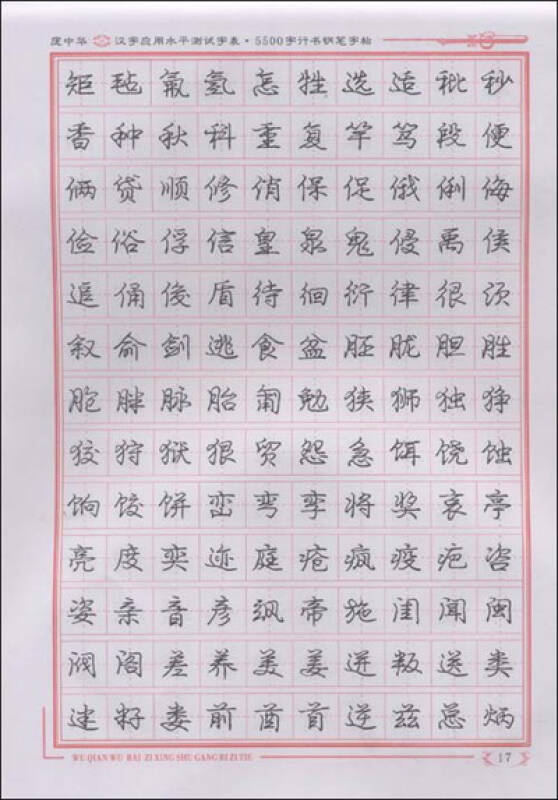 庹中华 汉字应用水平测试字表·5500字行书钢笔字帖
矩毡氟氢怎牲选适秕秒
香种秋科重复竿笃段便
俩贷顺修俏保促俄俐侮
俭俗俘信皇泉鬼侵禹侯
追俑俊盾待徊衍律很须
叙俞剑逃食盆胚胧胆胜
胞胖脉胎匍勉狭狮独狰
狡狩狱狠贸怨急饵饶蚀
饷饺饼峦弯孪将奖哀亭
亮度奕迹庭疮疯疫疤咨
姿亲音彦飒帝施闺闻闽
阀阁差养美姜迸叛送类
迷籽娄前酋首逆兹总炳
WU QIAN WU BAI ZI XING SHU GANG BI ZI TIE
17